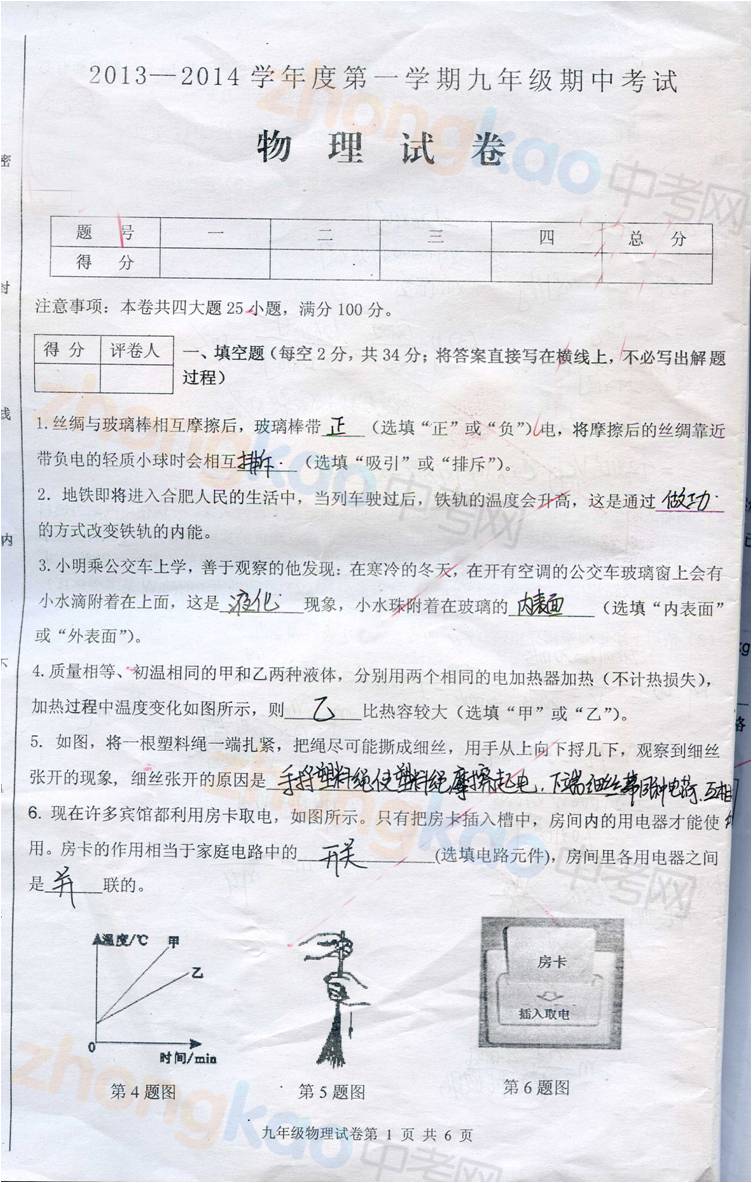 2013—2014学年度第一学期九年级期中考试
物 理 试 卷
题 号 一 二 三 四 总 分
得 分
注意事项：本卷共四大题25小题，满分100分。
得 分 评卷人
一、填空题（每空2分，共34分；将答案直接写在横线上，不必写出解题
过程）
1.丝绸与玻璃棒相互摩擦后，玻璃棒带 正 （选填“正”或“负”）电，将摩擦后的丝绸靠近
带负电的轻质小球时会相互 排斥 （选填“吸引”或“排斥”）。
2．地铁即将进入合肥人民的生活中，当列车驶过后，铁轨的温度会升高，这是通过 做功
的方式改变铁轨的内能。
3.小明乘公交车上学，善于观察的他发现：在寒冷的冬天，在开有空调的公交车玻璃窗上会有
小水滴附着在上面，这是 液化 现象，小水珠附着在玻璃的 内表面 （选填“内表面”
或“外表面”）。
4.质量相等、初温相同的甲和乙两种液体，分别用两个相同的电加热器加热（不计热损失），
加热过程中温度变化如图所示，则 乙 比热容较大（选填“甲”或“乙”）。
5．如图，将一根塑料绳一端扎紧，把绳尽可能撕成细丝，用手从上向下捋几下，观察到细丝
张开的现象，细丝张开的原因是 手捋塑料绳使塑料绳摩擦起电，下端细丝带同种电荷，互相
6．现在许多宾馆都利用房卡取电，如图所示。只有把房卡插入槽中，房间内的用电器才能使
用。房卡的作用相当于家庭电路中的 开关 (选填电路元件)，房间里各用电器之间
是 并 联的。
温度/℃ 甲
乙
0
时间/min
房卡
插入取电
第4题图 第5题图 第6题图
九年级物理试卷第 1 页 共 6 页
zhongkao 中考网
密
封
线
内